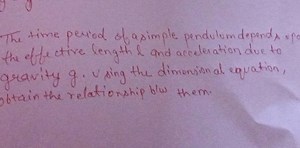 The time period of a simple pendulum depends upo
the effective length l and acceleration due to
gravity g. using the dimensional equation,
obtain the relationship b/w them